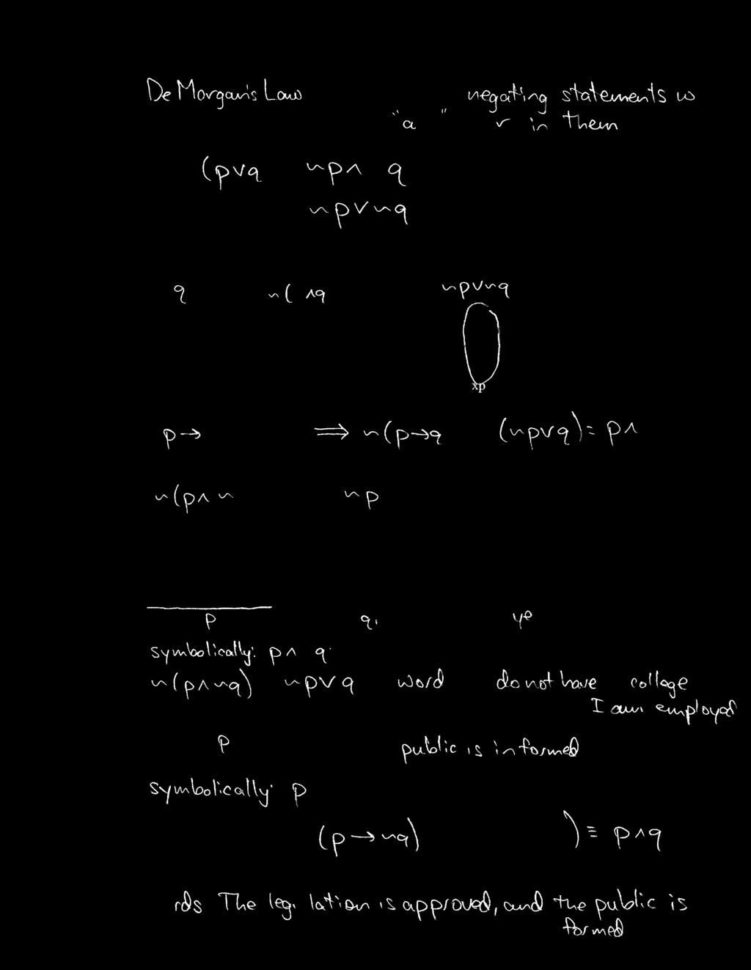 De Morgan's Law negating statements w
"a " v in them
(p∨q ~p∧ q
~p∨~q
q ~( ∧q ~p∨~q
xp
p→ ⟹ ~(p→q (~p∨q)= p∧
~(p∧ ~ ~p
p q.
symbolically: p∧ q
~(p∧~q) ~p∨q word do not have college
I am employed
p public is informed
symbolically: p
(p→~q) )≡ p∧q
rds The leg. lation is approved, and the public is
formed